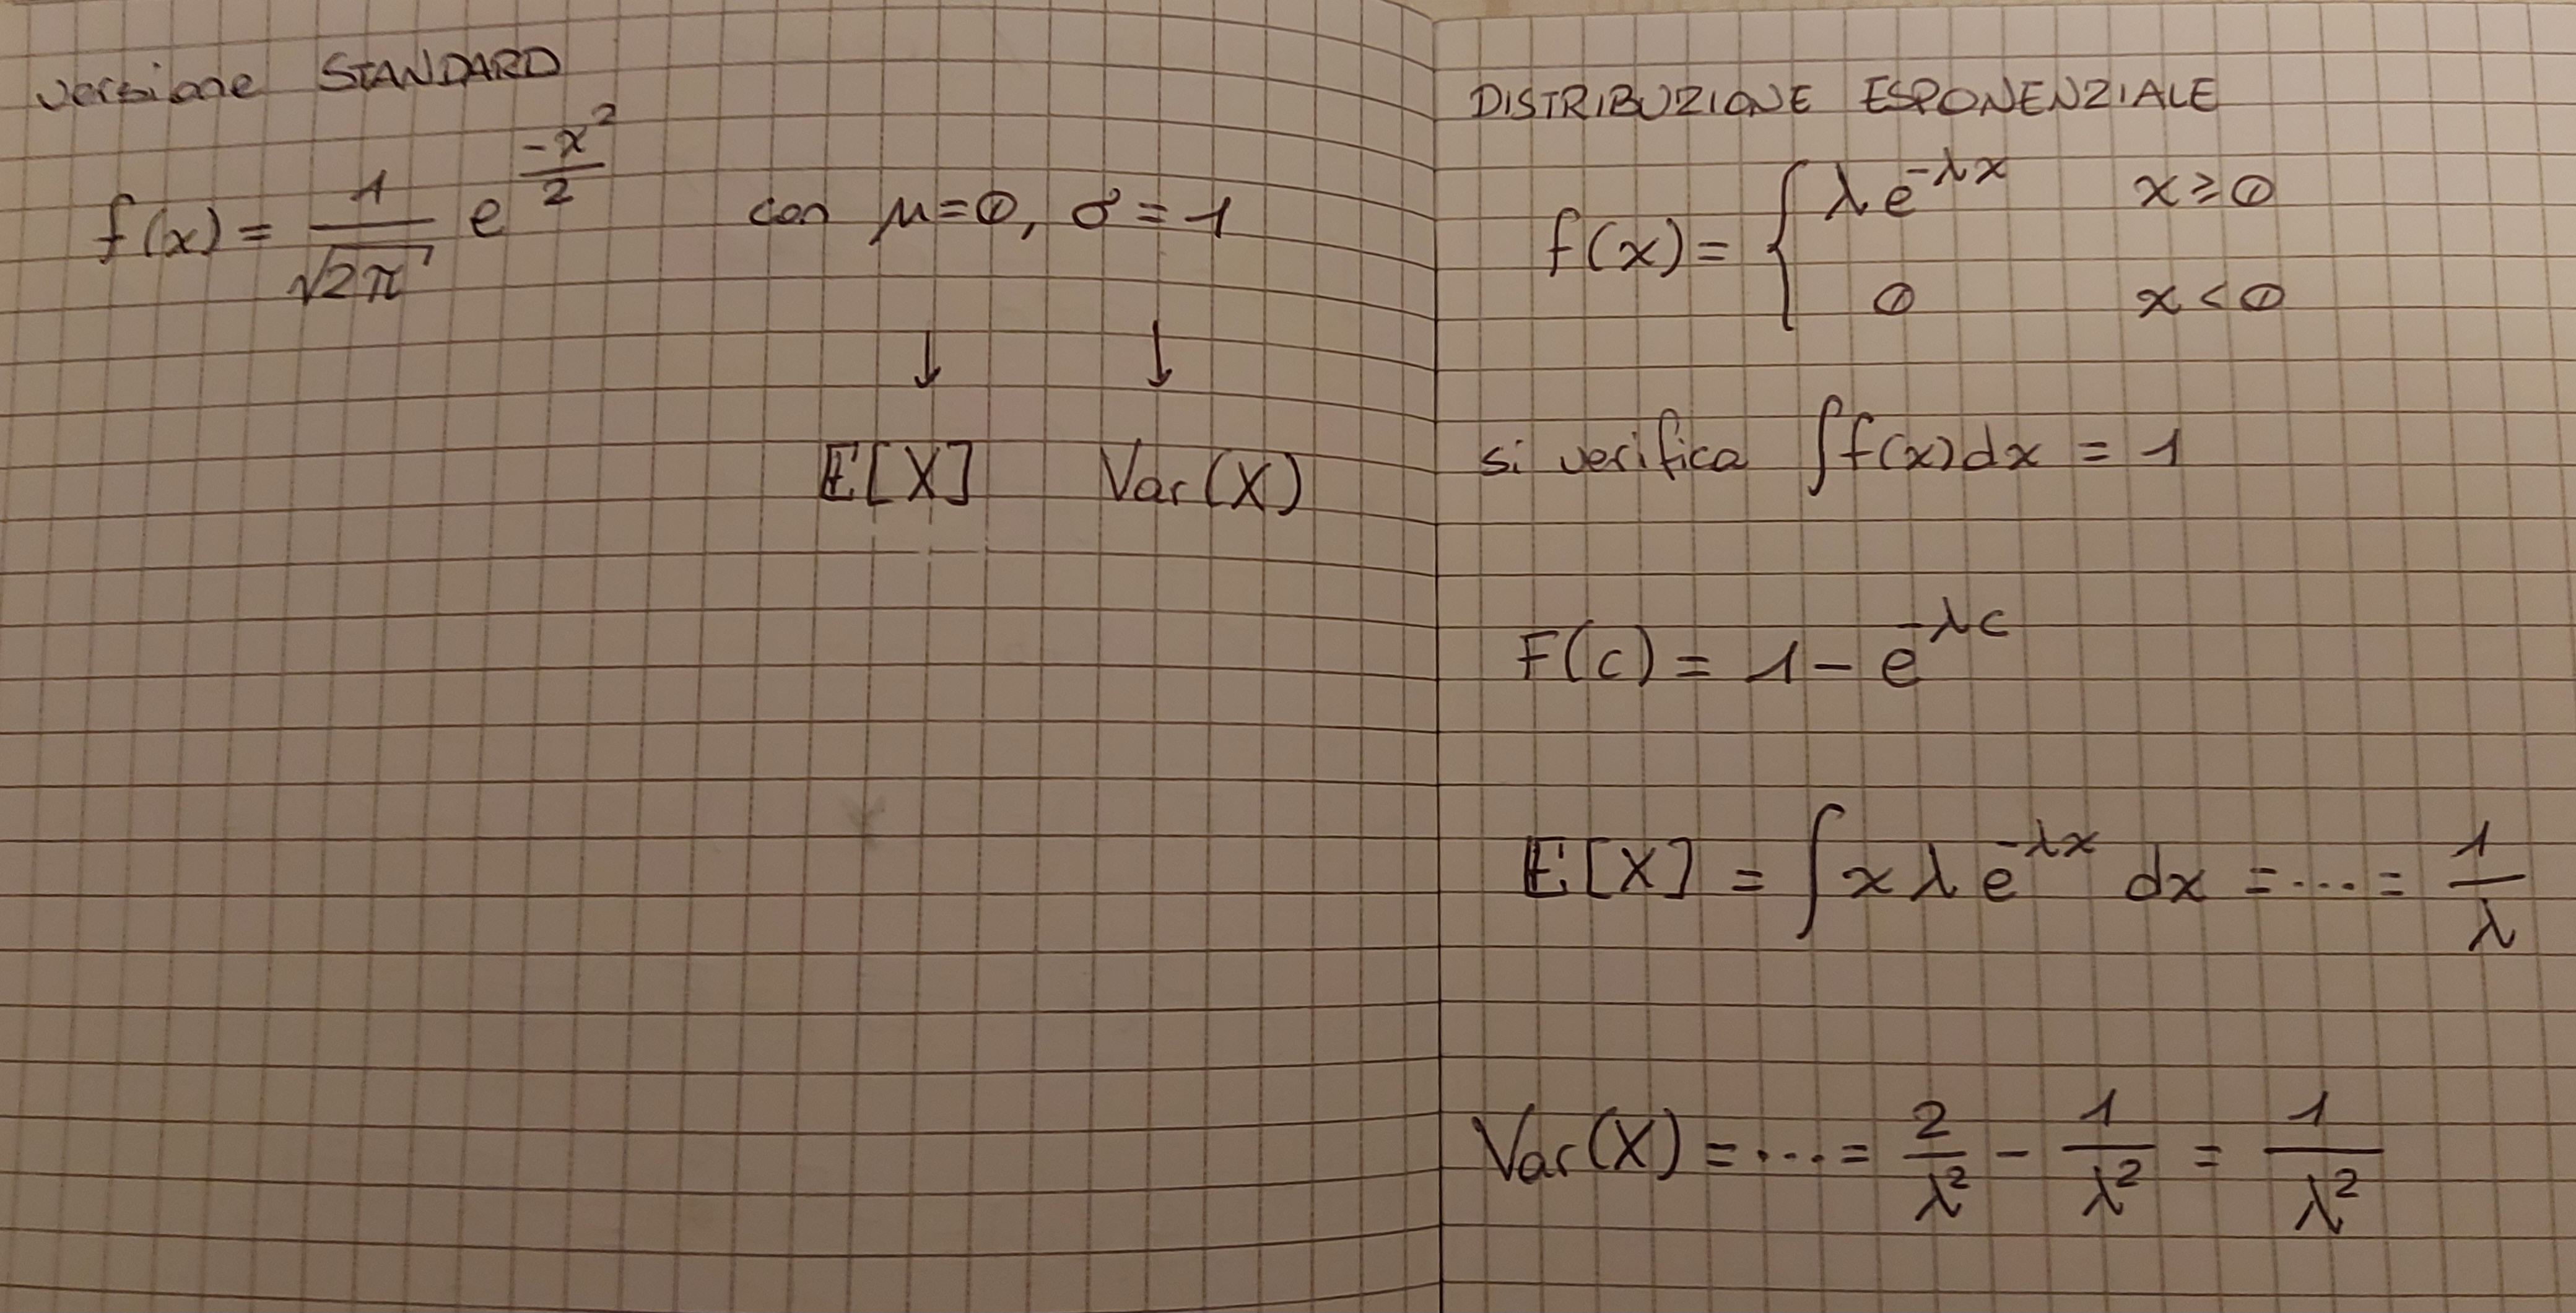 versione STANDARD
f(x) = 1/√2π e^(-x²/2) con μ=0, σ=1
↓ ↓
E[X] Var(X)
DISTRIBUZIONE ESPONENZIALE
f(x) = { λe^(-λx) x≥0
0 x<0
si verifica ∫f(x)dx = 1
F(c) = 1 - e^(-λc)
E[X] = ∫xλe^(-λx) dx = ... = 1/λ
Var(X) = ... = 2/λ² - 1/λ² = 1/λ²